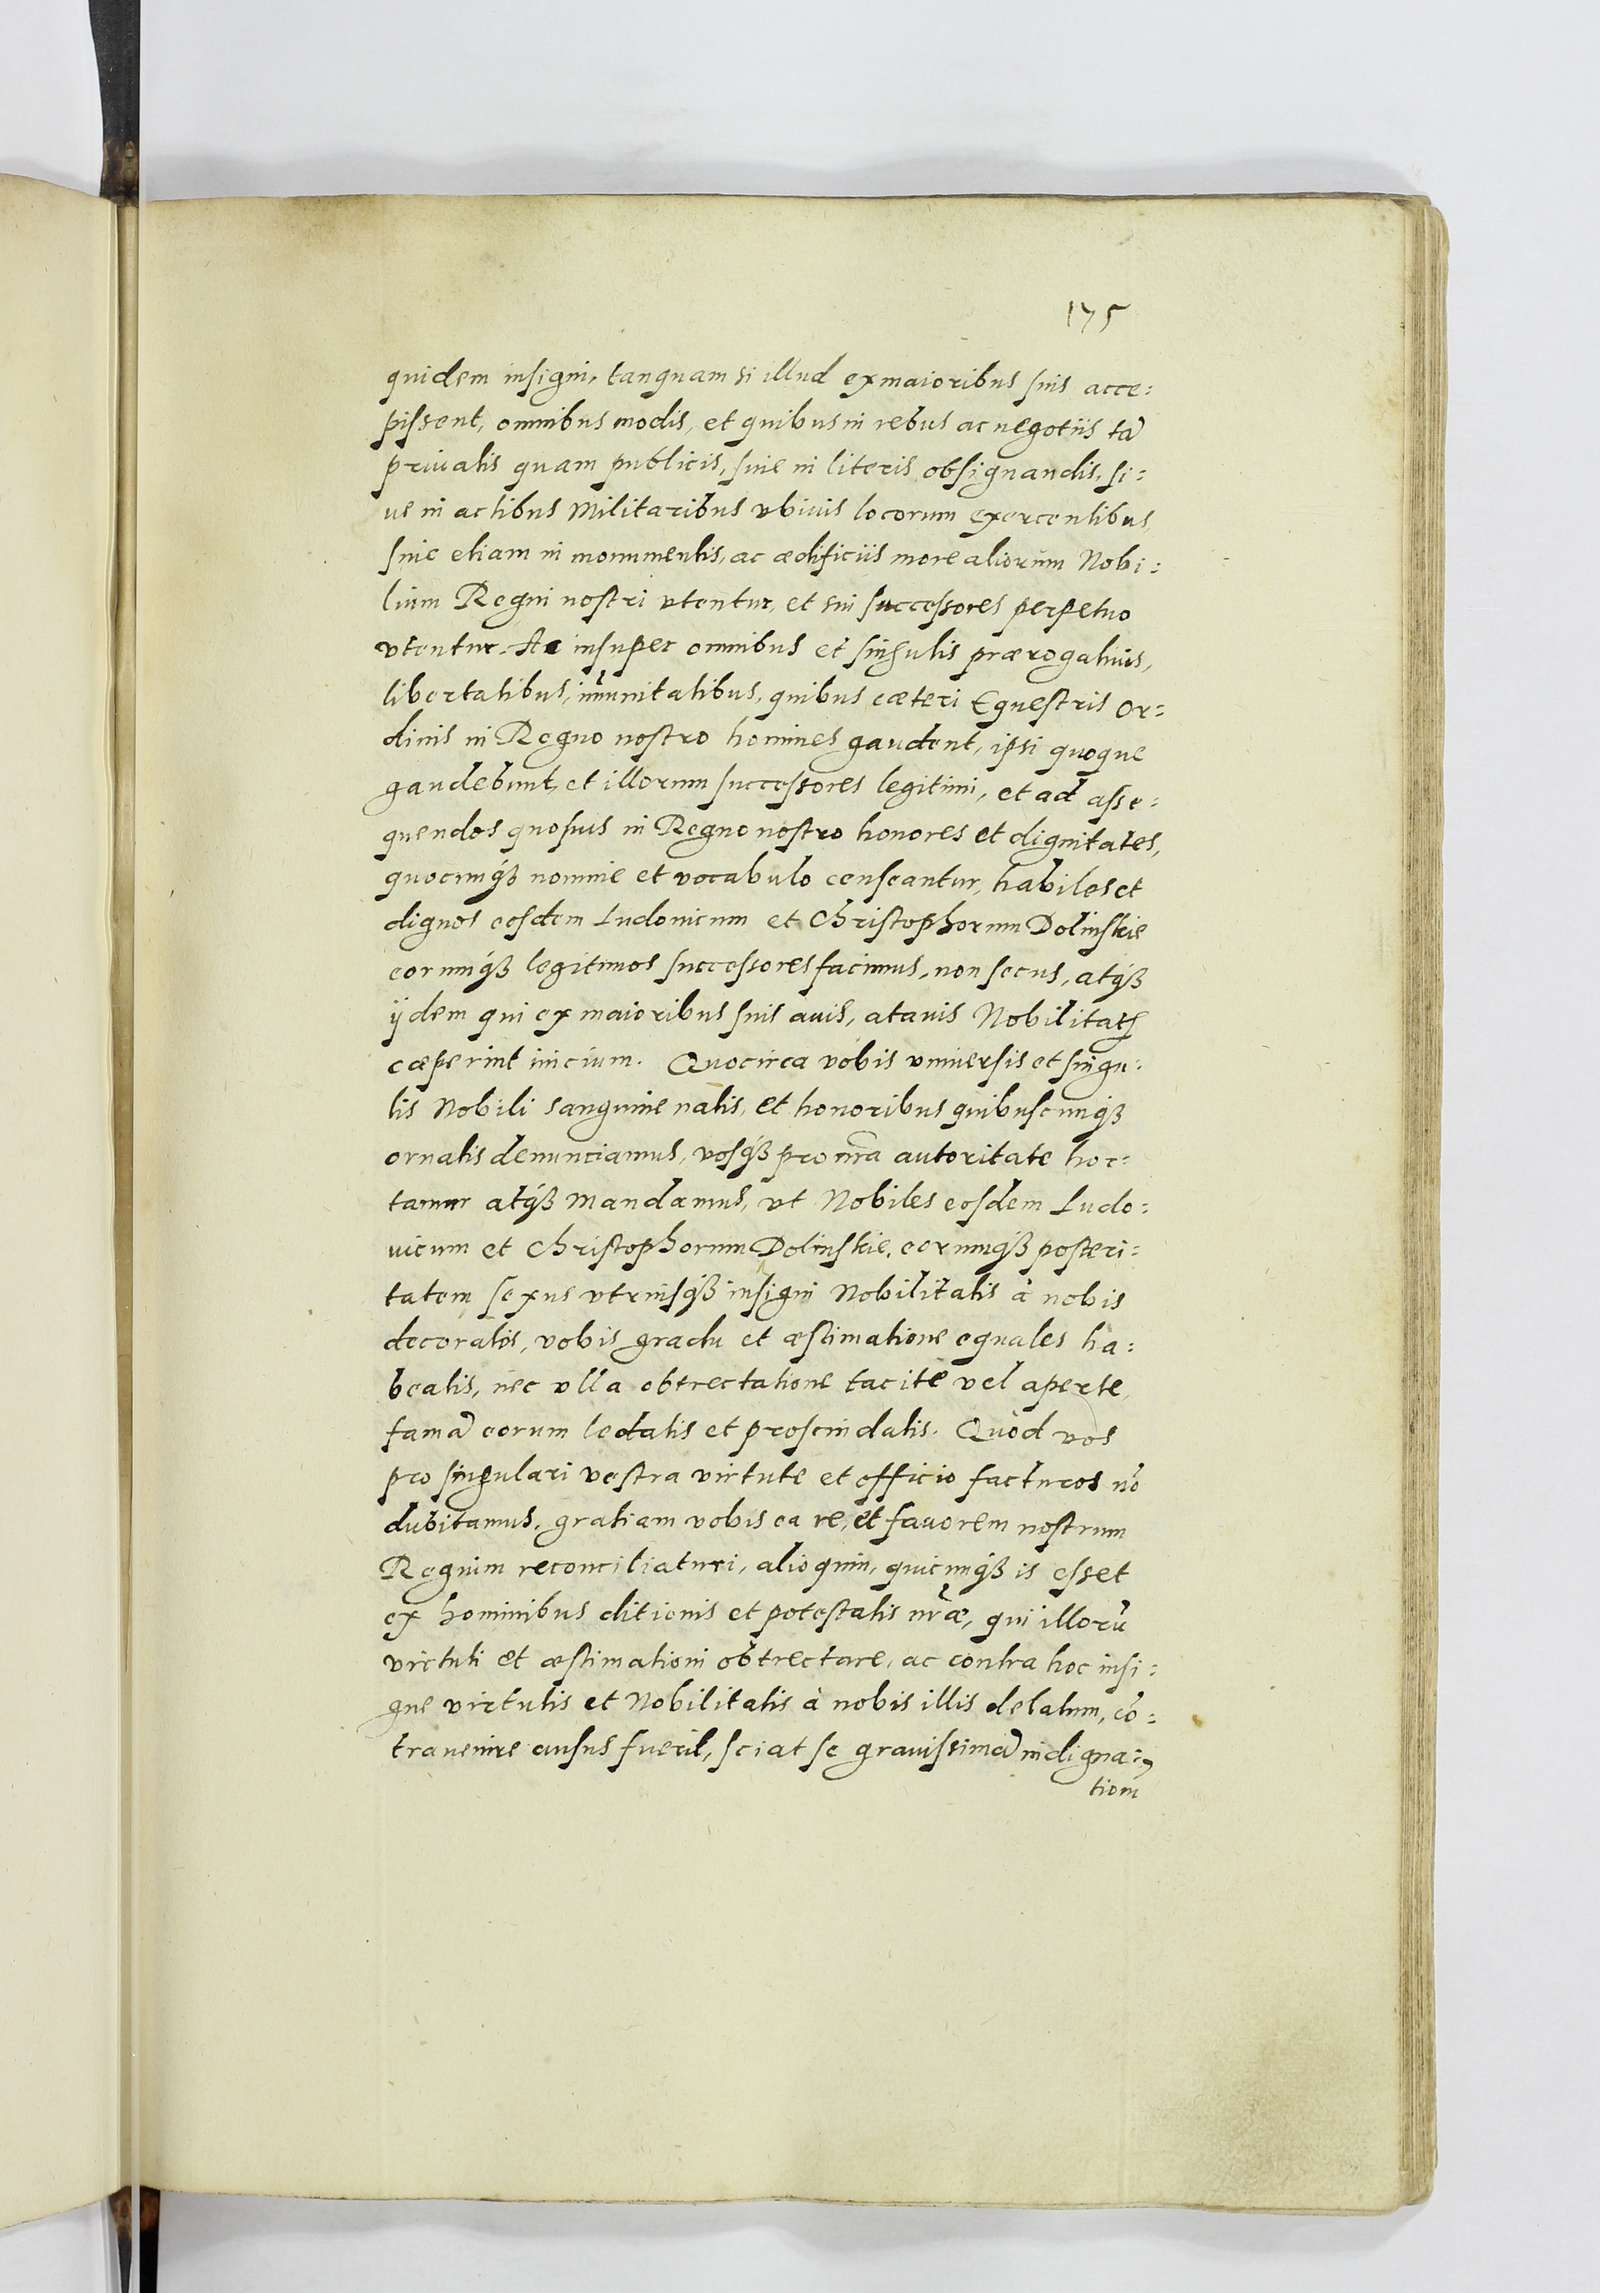 175
quidem insigni, tanquam si illud ex maioribus suis acce:
pissent, omnibus modis, et quibus in rebus ac negotiis tā
privatis quam publicis, siue in literis obsignandis, si:
ue in actibus Militaribus vbiuis locorum exercentibus,
siue etiam in monumentis, ac ædificiis more aliorum Nobi:
lium Regni nostri vtentur, et sui successores perpetuo
vtentur. Ac insuper omnibus et singulis prærogatiuis,
libertatibus, im̄unitatibus, quibus cæteri Equestris Or:
dinis in Regno nostro homines gaudent, ipsi quoque
gaudebunt, et illorum successores legitimi, et ad asse:
quendos quosuis in Regno nostro honores et dignitates,
quocunq́ꝫ nomine et vocabulo censeantur, habiles et
dignos eosdem Ludouicum et Christophorum Dolinskie
eorumq́ꝫ legitimos successores facimus, non secus, atq́ꝫ
ijdem qui ex maioribus suis auis, atauis Nobilitatis
cæperint inicium. Quocirca vobis vniuersis et singu:
lis Nobili sanguine natis, et honoribus quibuscunq́ꝫ
ornatis denunciamus, vosq́ꝫ pro nr̄a autoritate hor:
tamur atq́ꝫ mandamus, vt Nobiles eosdem Ludo:
uicum et Christophorum Dolinskie, eorumq́ꝫ posteri:
tatem sexus vtriusq́ꝫ insigni Nobilitatis à nobis
decoratos, vobis gradu et æstimatione equales ha:
beatis, nec vlla obtrectatione tacite vel aperte,
famā eorum ledatis et proscindatis. Quòd vos
pro singulari vestra virtute et officio facturos nō
dubitamus, gratiam vobis ea re, et fauorem nostrum
Regium reconciliaturi, alioquin, quicunq́ꝫ is esset
ex hominibus ditionis et potestatis nr̄æ, qui illorū
virtuti et æstimationi obtrectare, ac contra hoc insi:
gne virtutis et Nobilitatis à nobis illis delatum, cō:
trauenire ausus fuerit, sciat se grauissimā indigna:
tiom